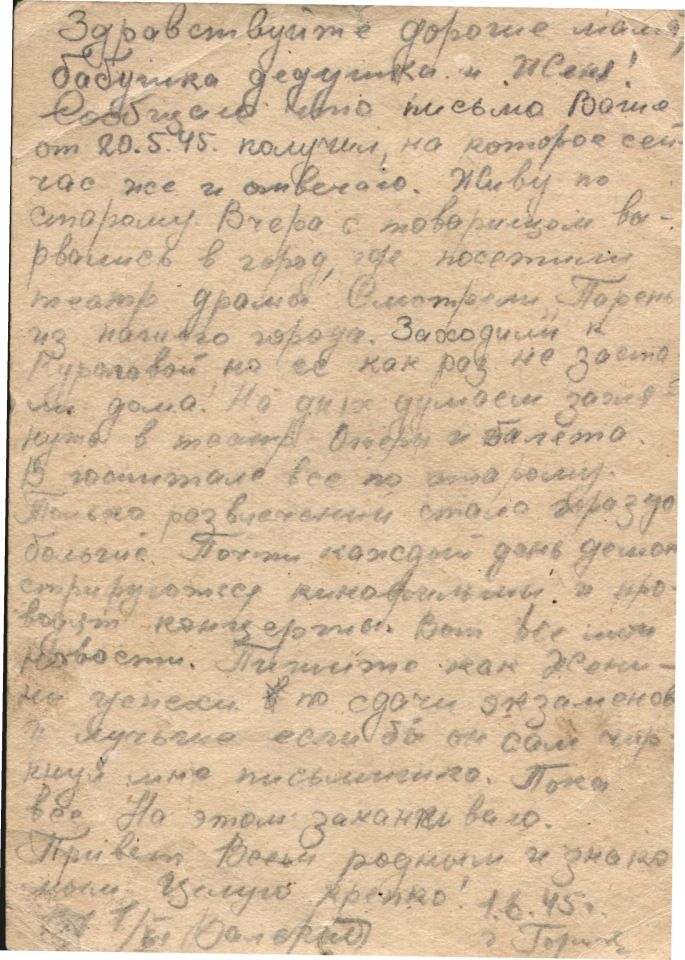 Здравствуйте дорогие мама,
бабушка дедушка и Женя!
Сообщаю что письмо Ваше
от 20.5.45. получил, на которое сей-
час же и отвечаю. Живу по
старому. Вчера с товарищом вы-
рвались в город, где посетили
театр драмы. Смотрели "Парень
из нашего города". Заходили к
но ее как раз не заста-
ли дома! На днях думаем загля-
нуть в театр Оперы и Балета.
В госпитале все по старому.
Только развлечений стало гораздо
больше. Почти каждый день демон
стрируются кинофильмы и про-
водят концерты. Вот все мои
новости. Пишите как Жени-
ны успехи по сдачи экзаменов
и лучьше если бы он сам чир-
кнул мне письмишко. Пока
все. На этом заканчиваю.
Привет Всем родным и знако
мым. Целую крепко! 1.6.45г.
1/VI (Валерий) г. Горький